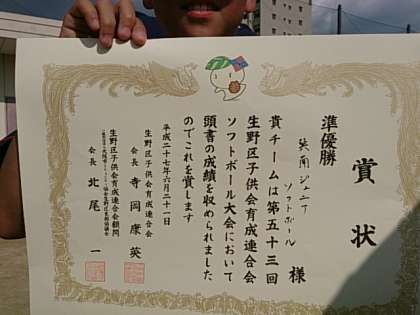 賞状
準優勝
巽南ジュニア
ソフトボール
様
貴チームは第五十三回
生野区子供会育成連合会
ソフトボール大会において
頭書の成績を収められました
のでこれを賞します
平成二十七年六月二十一日
生野区子供会育成連合会
会長 寺岡康英
生野区子供会育成連合会顧問
会長 北尾一